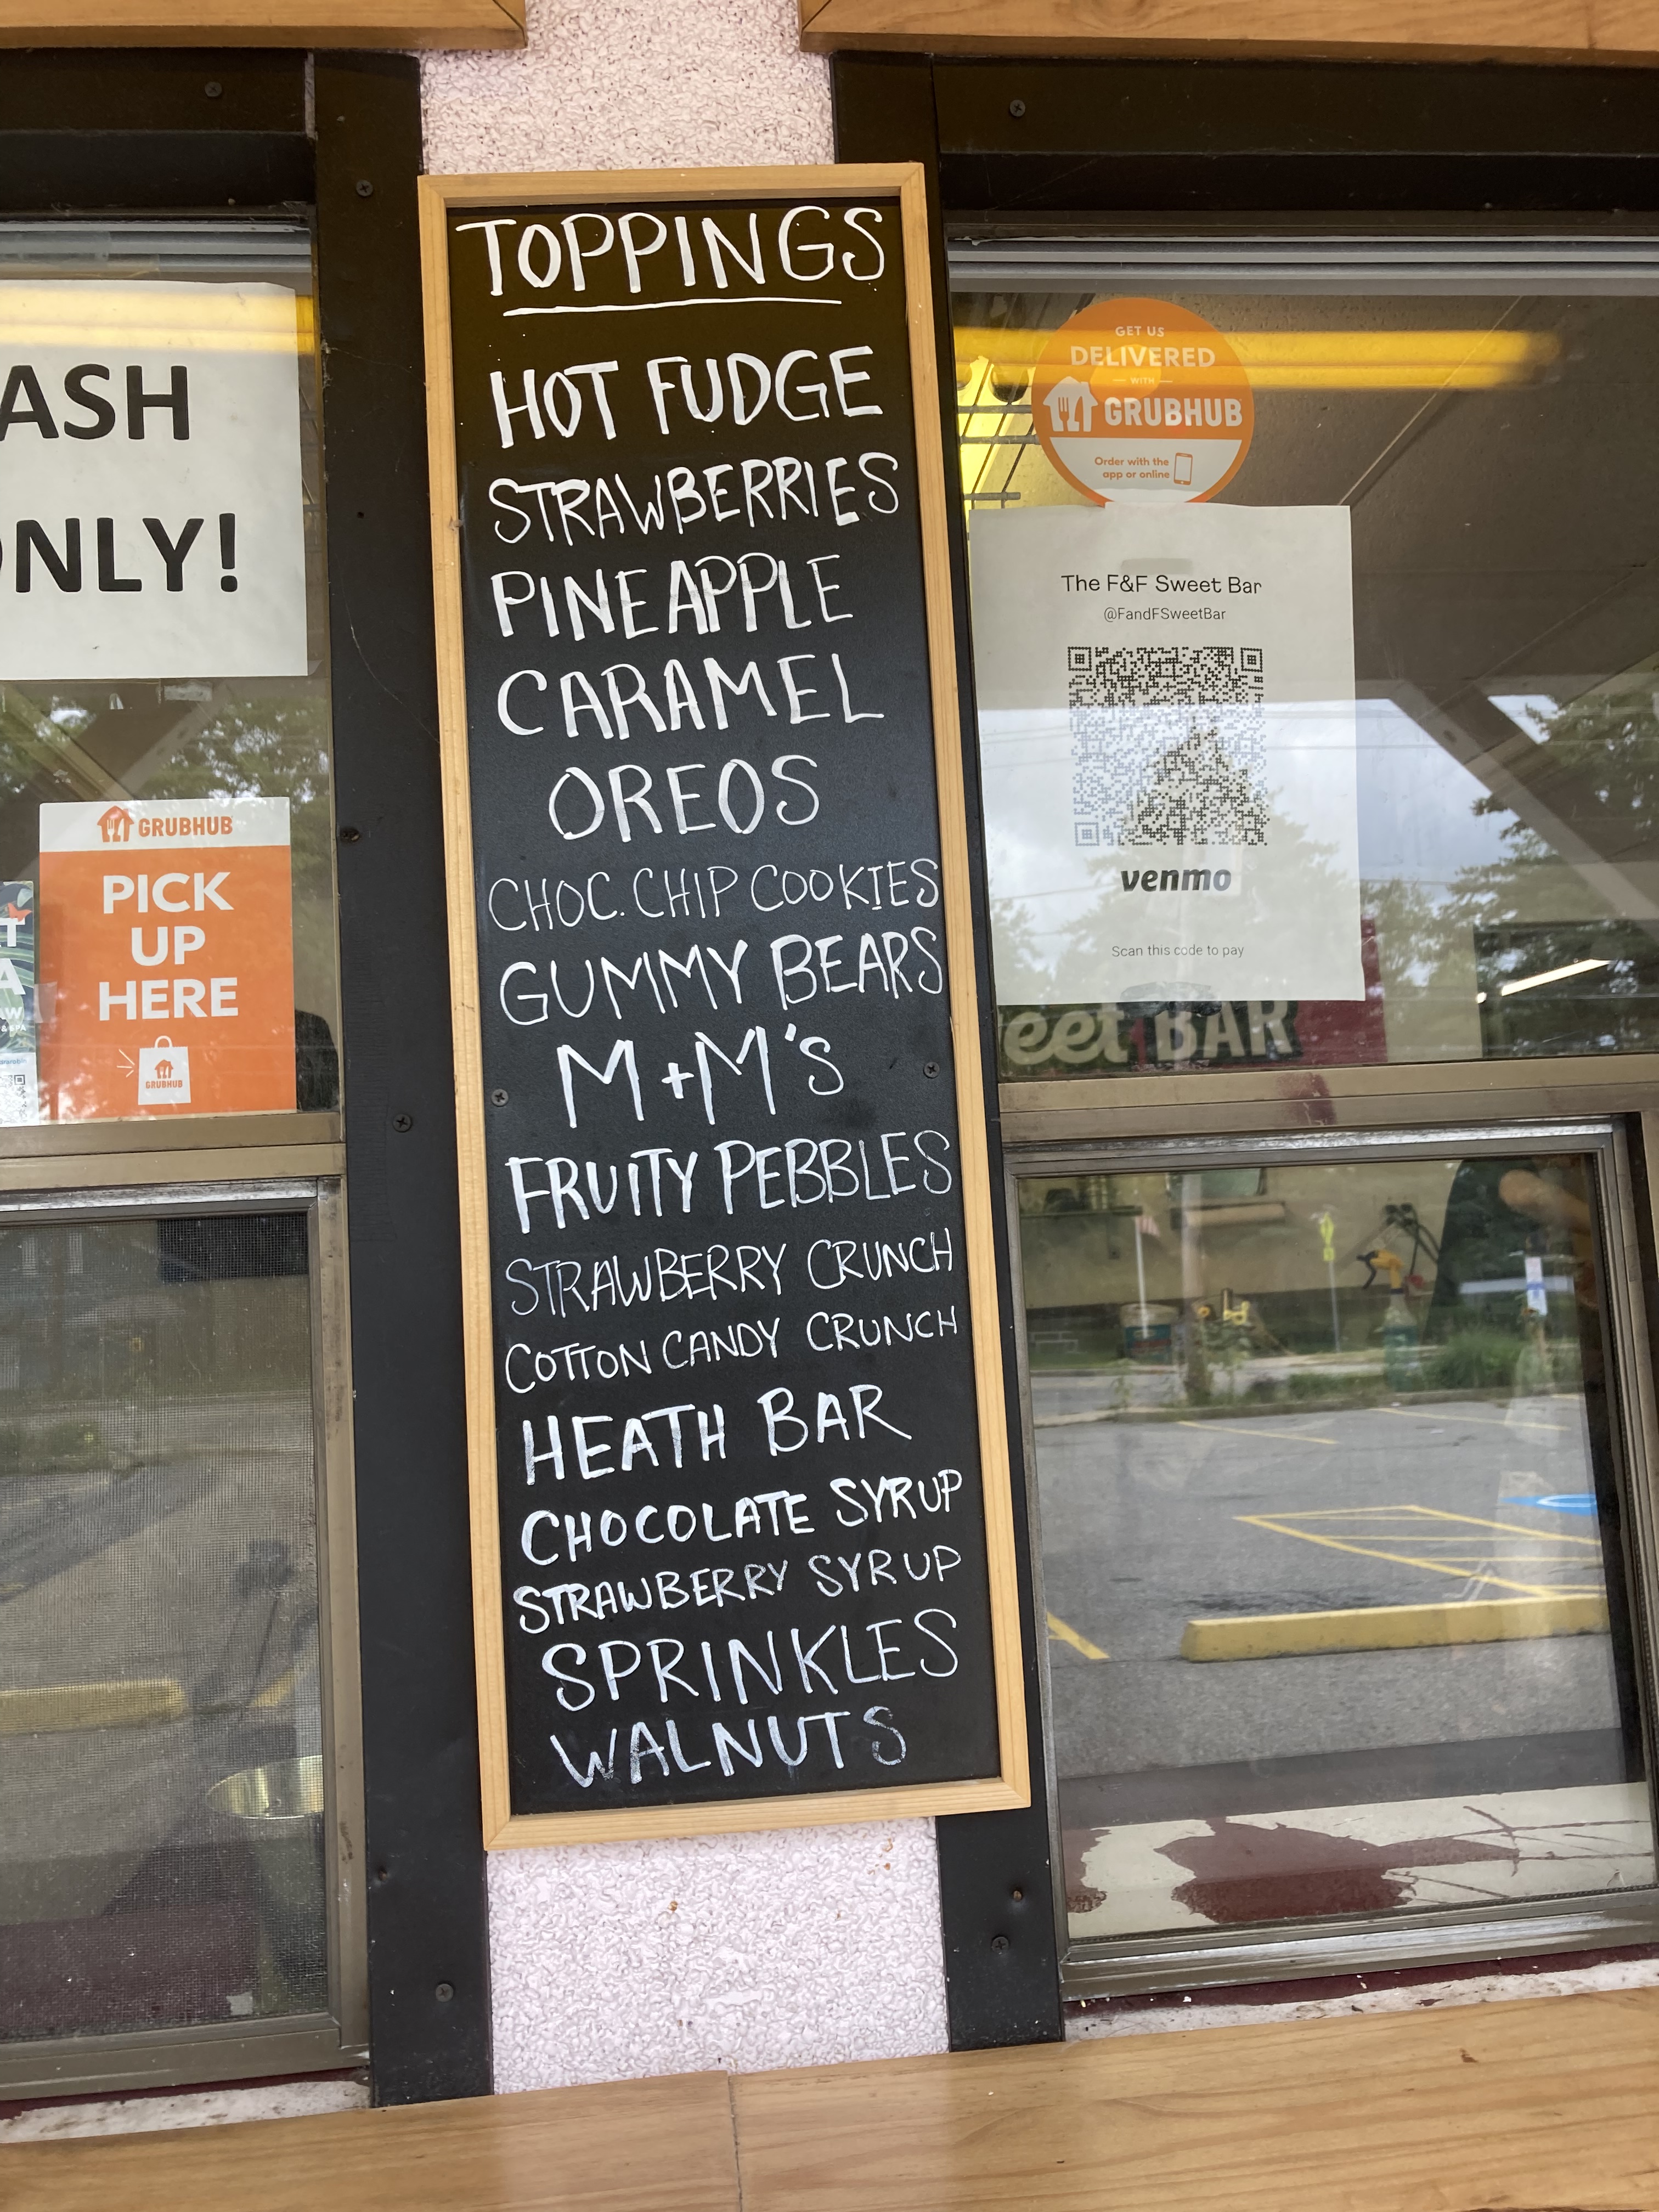 TOPPINGS
HOT FUDGE
STRAWBERRIES
PINEAPPLE
CARAMEL
OREOS
CHOC. CHIP COOKIES
GUMMY BEARS
M+M'S
FRUITY PEBBLES
STRAWBERRY CRUNCH
COTTON CANDY CRUNCH
HEATH BAR
CHOCOLATE SYRUP
STRAWBERRY SYRUP
SPRINKLES
WALNUTS
ASH
ONLY!
GRUBHUB
PICK
UP
HERE
GRUBHUB
GET US
DELIVERED
WITH
GRUBHUB
Order with the
app or online
The F&F Sweet Bar
@FandFSweetBar
venmo
Scan this code to pay
eet BAR